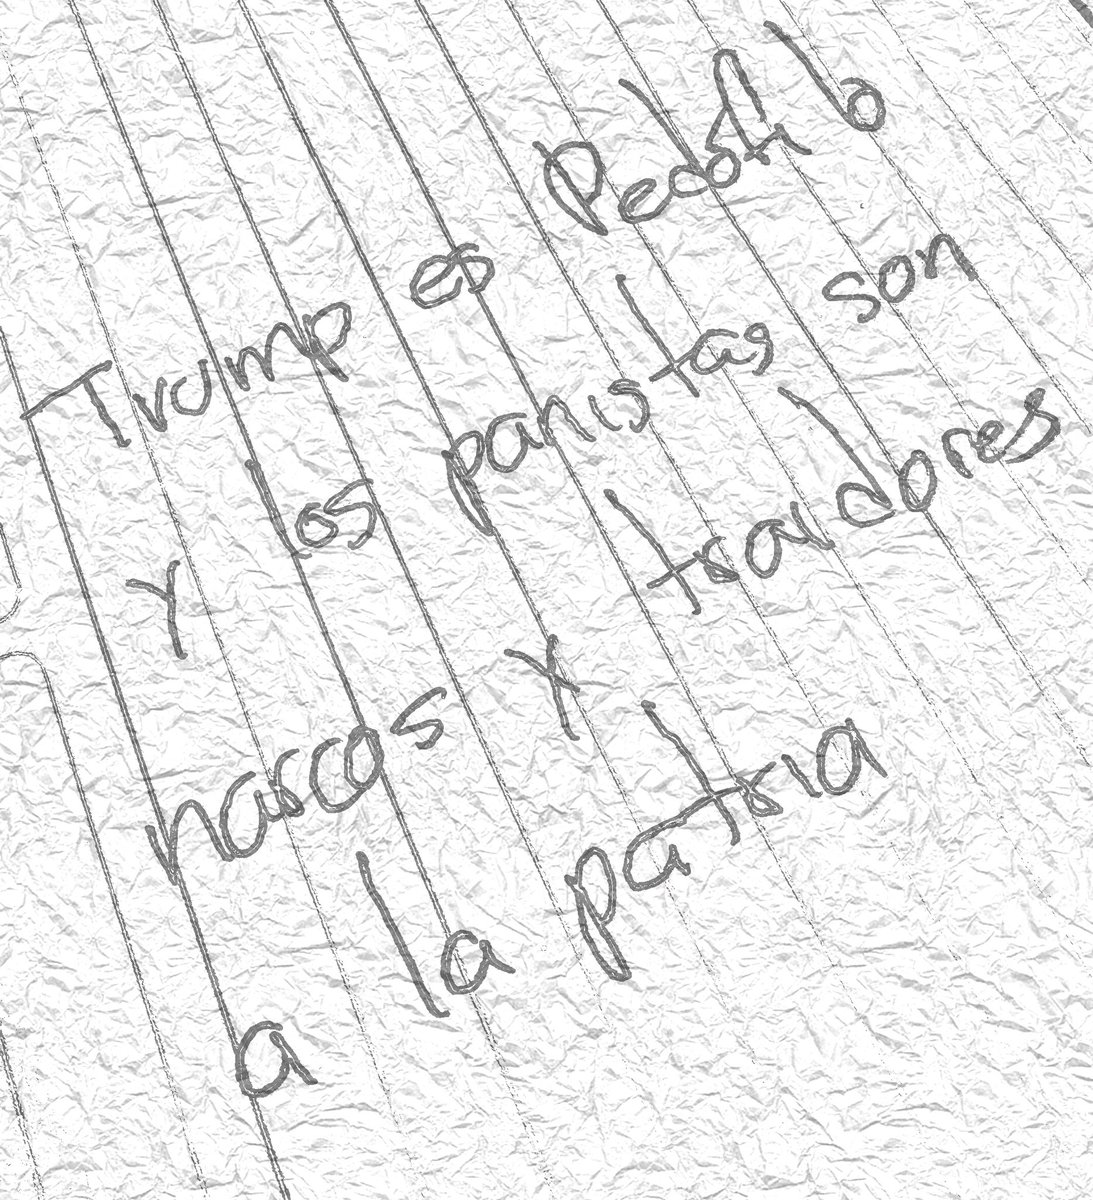 Trump es Pedofilo
y los panistas son
narcos y traidores
a la patria